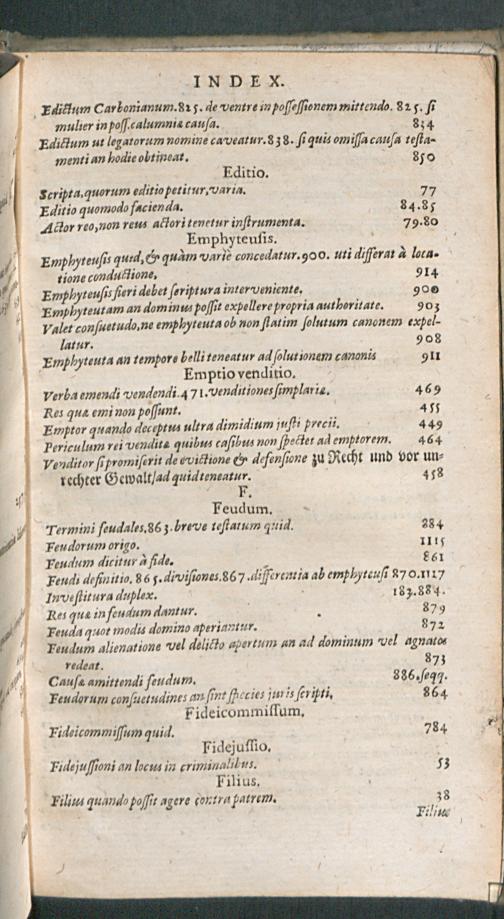 INDEX.
Edictum Carbonianum. 825. de ventre in possessionem mittendo. 825. si
mulier in poss. calumniæ causa. 834
Edictum ut legatorum nomine caveatur. 838. si quis omissa causa testa-
menti an hodie obtineat. 850
Editio.
Scripta, quorum editio petitur, varia. 77
Editio quomodo facienda. 84.85
Actor reo, non reus actori tenetur instrumenta. 79.80
Emphyteusis.
Emphyteusis quid, & quàm variè concedatur. 900. uti differat à loca-
tione conductione. 914
Emphyteusis fieri debet scriptura interveniente. 900
Emphyteutam an dominus possit expellere propria authoritate. 903
Valet consuetudo, ne emphyteuta ob non statim solutum canonem expel-
latur. 908
Emphyteuta an tempore belli teneatur ad solutionem canonis 911
Emptio venditio.
Verba emendi vendendi. 471. venditiones simplariæ. 469
Res quæ emi non possunt. 455
Emptor quando deceptus ultra dimidium justi precii. 449
Periculum rei venditæ quibus casibus non spectet ad emptorem. 464
Venditor si promiserit de evictione & defensione zu Recht und vor un-
rechter Gewalt/ ad quid teneatur. 458
F.
Feudum.
Termini feudales. 863. breve testatum quid. 884
Feudorum origo. 1115
Feudum dicitur à fide. 861
Feudi definitio. 865. divisiones. 867. differentia ab emphyteusi 870.1117
Investitura duplex. 183.884.
Res quæ in feudum dantur. 879
Feuda quot modis domino aperiantur. 872
Feudum alienatione vel delicto apertum an ad dominum vel agnatos
redeat. 873
Causæ amittendi feudum. 886. seqq.
Feudorum consuetudines an sint species juris scripti. 864
Fideicommissum.
Fideicommissum quid. 784
Fidejussio.
Fidejussioni an locus in criminalibus. 53
Filius.
Filius quando possit agere contra patrem. 38
Filius